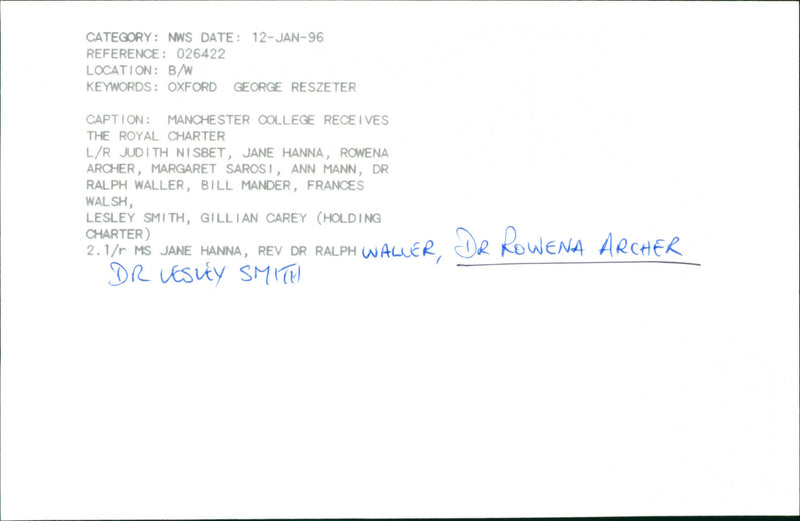 CATEGORY: NWS DATE: 12-JAN-96
REFERENCE: 026422
LOCATION: B/W
KEYWORDS: OXFORD  GEORGE RESZETER
CAPTION:  MANCHESTER COLLEGE RECEIVES
THE ROYAL CHARTER
L/R JUDITH NISBET, JANE HANNA, ROWENA
ARCHER, MARGARET SAROSI, ANN MANN, DR
RALPH WALLER, BILL MANDER, FRANCES
WALSH,
LESLEY SMITH, GILLIAN CAREY (HOLDING
CHARTER)
2.l/r MS JANE HANNA, REV DR RALPH WALLER, DR ROWENA ARCHER
DR LESLEY SMITH